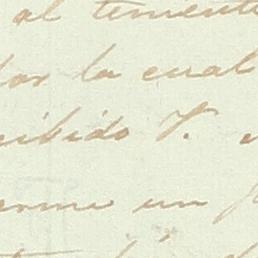 al teniente
por la cual
cibido V.
arme un